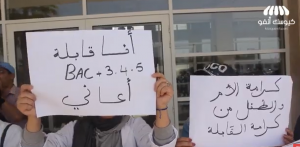 كيوسك أنفو
أنا قابلة
BAC + 3.4.5
أعاني
كرامة الأم
والطفل من
كرامة القابلة